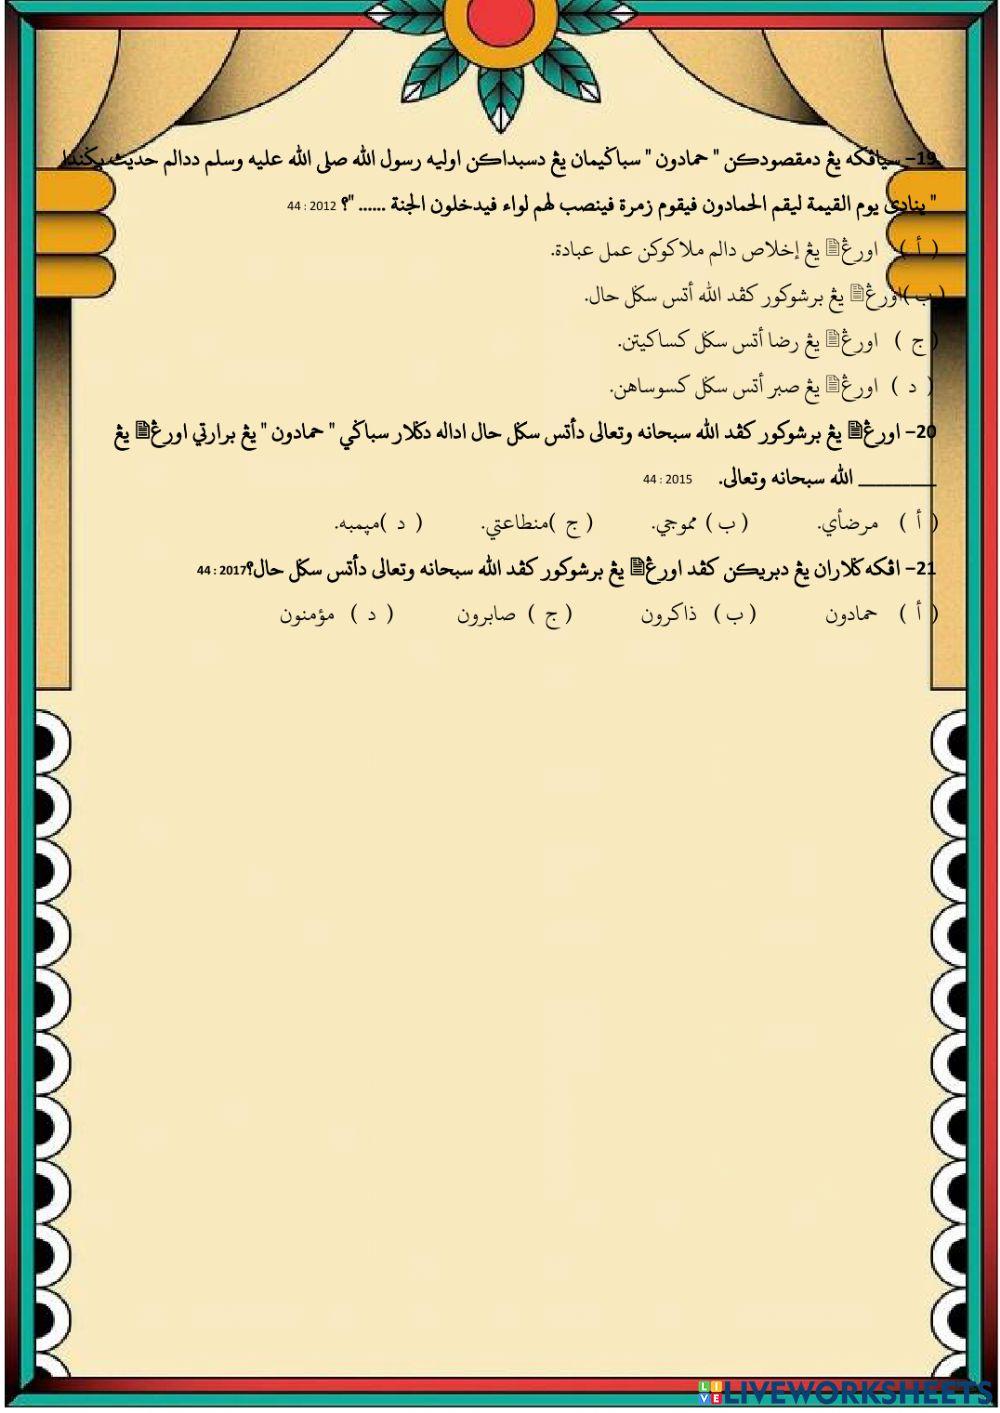 19- سياڤكه يڠ دمقصودكن " حمادون " سباݢيمان يڠ دسبداكن اوليه رسول الله صلى الله عليه وسلم ددالم حديث بݢيندا
" ينادى يوم القيمة ليقم الحمادون فيقوم زمرة فينصب لهم لواء فيدخلون الجنة ...... "؟ 2012 : 44
( أ ) اورڠ يڠ إخلاص دالم ملاكوكن عمل عبادة.
( ب )اورڠ يڠ برشوكور كڤد الله أتس سݢل حال.
( ج ) اورڠ يڠ رضا أتس سݢل كساكيتن.
( د ) اورڠ يڠ صبر أتس سݢل كسوساهن.
20- اورڠ يڠ برشوكور كڤد الله سبحانه وتعالى دأتس سݢل حال اداله دݢلار سباݢي " حمادون " يڠ برارتي اورڠ يڠ
_________ الله سبحانه وتعالى. 2015 : 44
( أ ) مرضأي. ( ب ) مموجي. ( ج )منطاعتي. ( د )مڽمبه.
21- اڤكه ݢلاران يڠ دبريكن كڤد اورڠ يڠ برشوكور كڤد الله سبحانه وتعالى دأتس سݢل حال؟2017 : 44
( أ ) حمادون ( ب ) ذاكرون ( ج ) صابرون ( د ) مؤمنون
LIVEWORKSHEETS